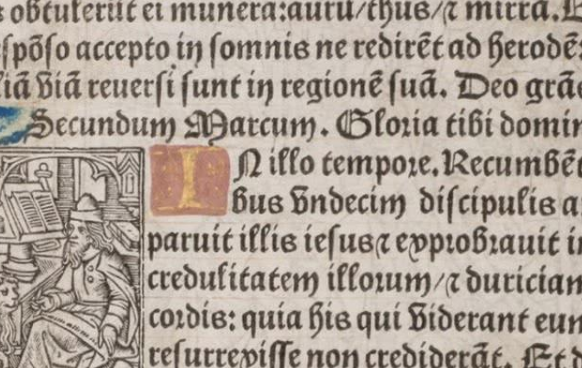 obtulerūt ei munera: aurū/thus/⁊ mirrā.
spōso accepto in somnis ne redirēt ad herodē
iā viā reuersi sunt in regionē suā. Deo grā
Secundum Marcum. Gloria tibi domin
IN illo tempore. Recumbēt
bus vndecim discipulis a
paruit illis iesus⁊ exprobrauit i
credulitatem illorum/⁊ duriciam
cordis: quia his qui viderant eum
resurrexisse non crediderāt. Et